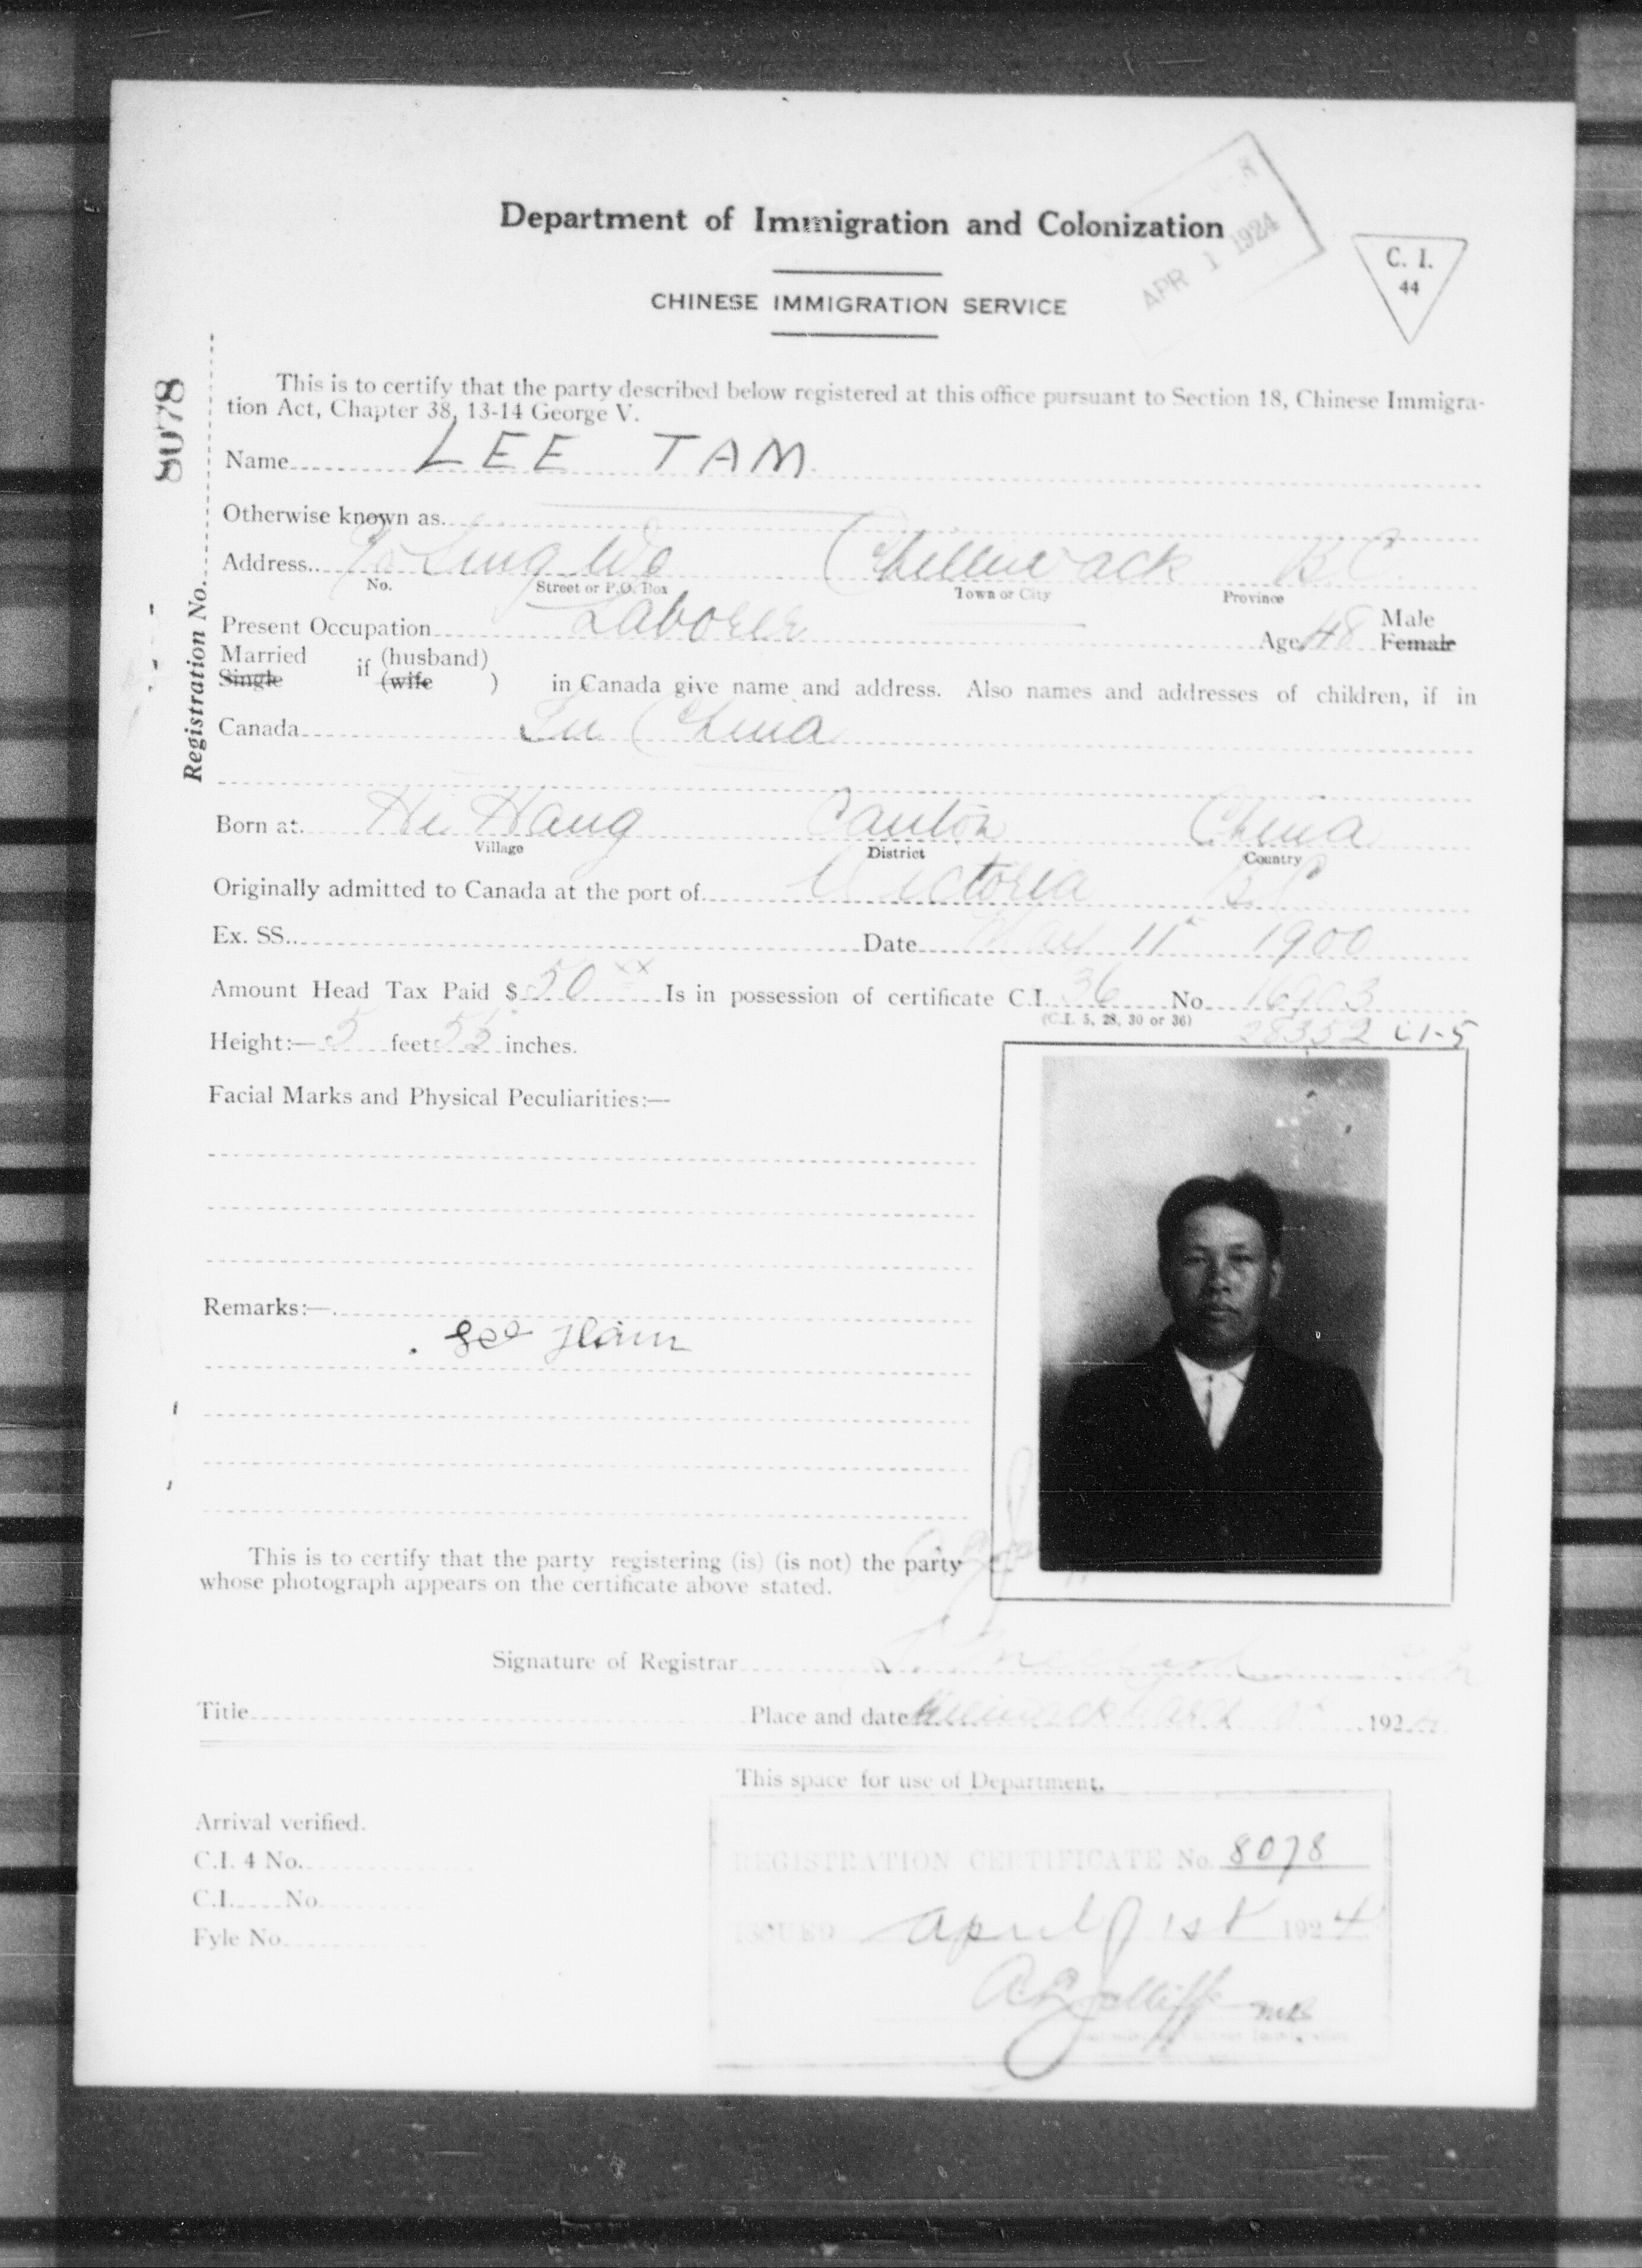 APR 1 1924
Department of Immigration and Colonization
C. I.
44
CHINESE IMMIGRATION SERVICE
This is to certify that the party described below registered at this office pursuant to Section 18, Chinese Immigra-
tion Act, Chapter 38, 13-14 George V.
Registration No. 8078
Name LEE TAM
Otherwise known as
Address c/o Sing Wo Chilliwack B.C.
No. Street or P.O. Box Town or City Province
Present Occupation Laborer Age 48 Male Female
Married if (husband)
Single (wife ) in Canada give name and address. Also names and addresses of children, if in
Canada In China
Born at Hang Canton China
Village District Country
Originally admitted to Canada at the port of Victoria B.C.
Ex. SS. Date May 11 1900
Amount Head Tax Paid $ 50 xx Is in possession of certificate C.I. 36 No. 16903
(C.I. 5, 28, 30 or 36)
28352 C1-5
Height:— 5 feet inches.
Facial Marks and Physical Peculiarities:—
Remarks:—
This is to certify that the party registering (is) (is not) the party
whose photograph appears on the certificate above stated.
Signature of Registrar
Title Place and date 192
This space for use of Department.
Arrival verified.
C.I. 4 No.
C.I. No.
Fyle No.
REGISTRATION CERTIFICATE No. 8078
ISSUED April 1st 1924